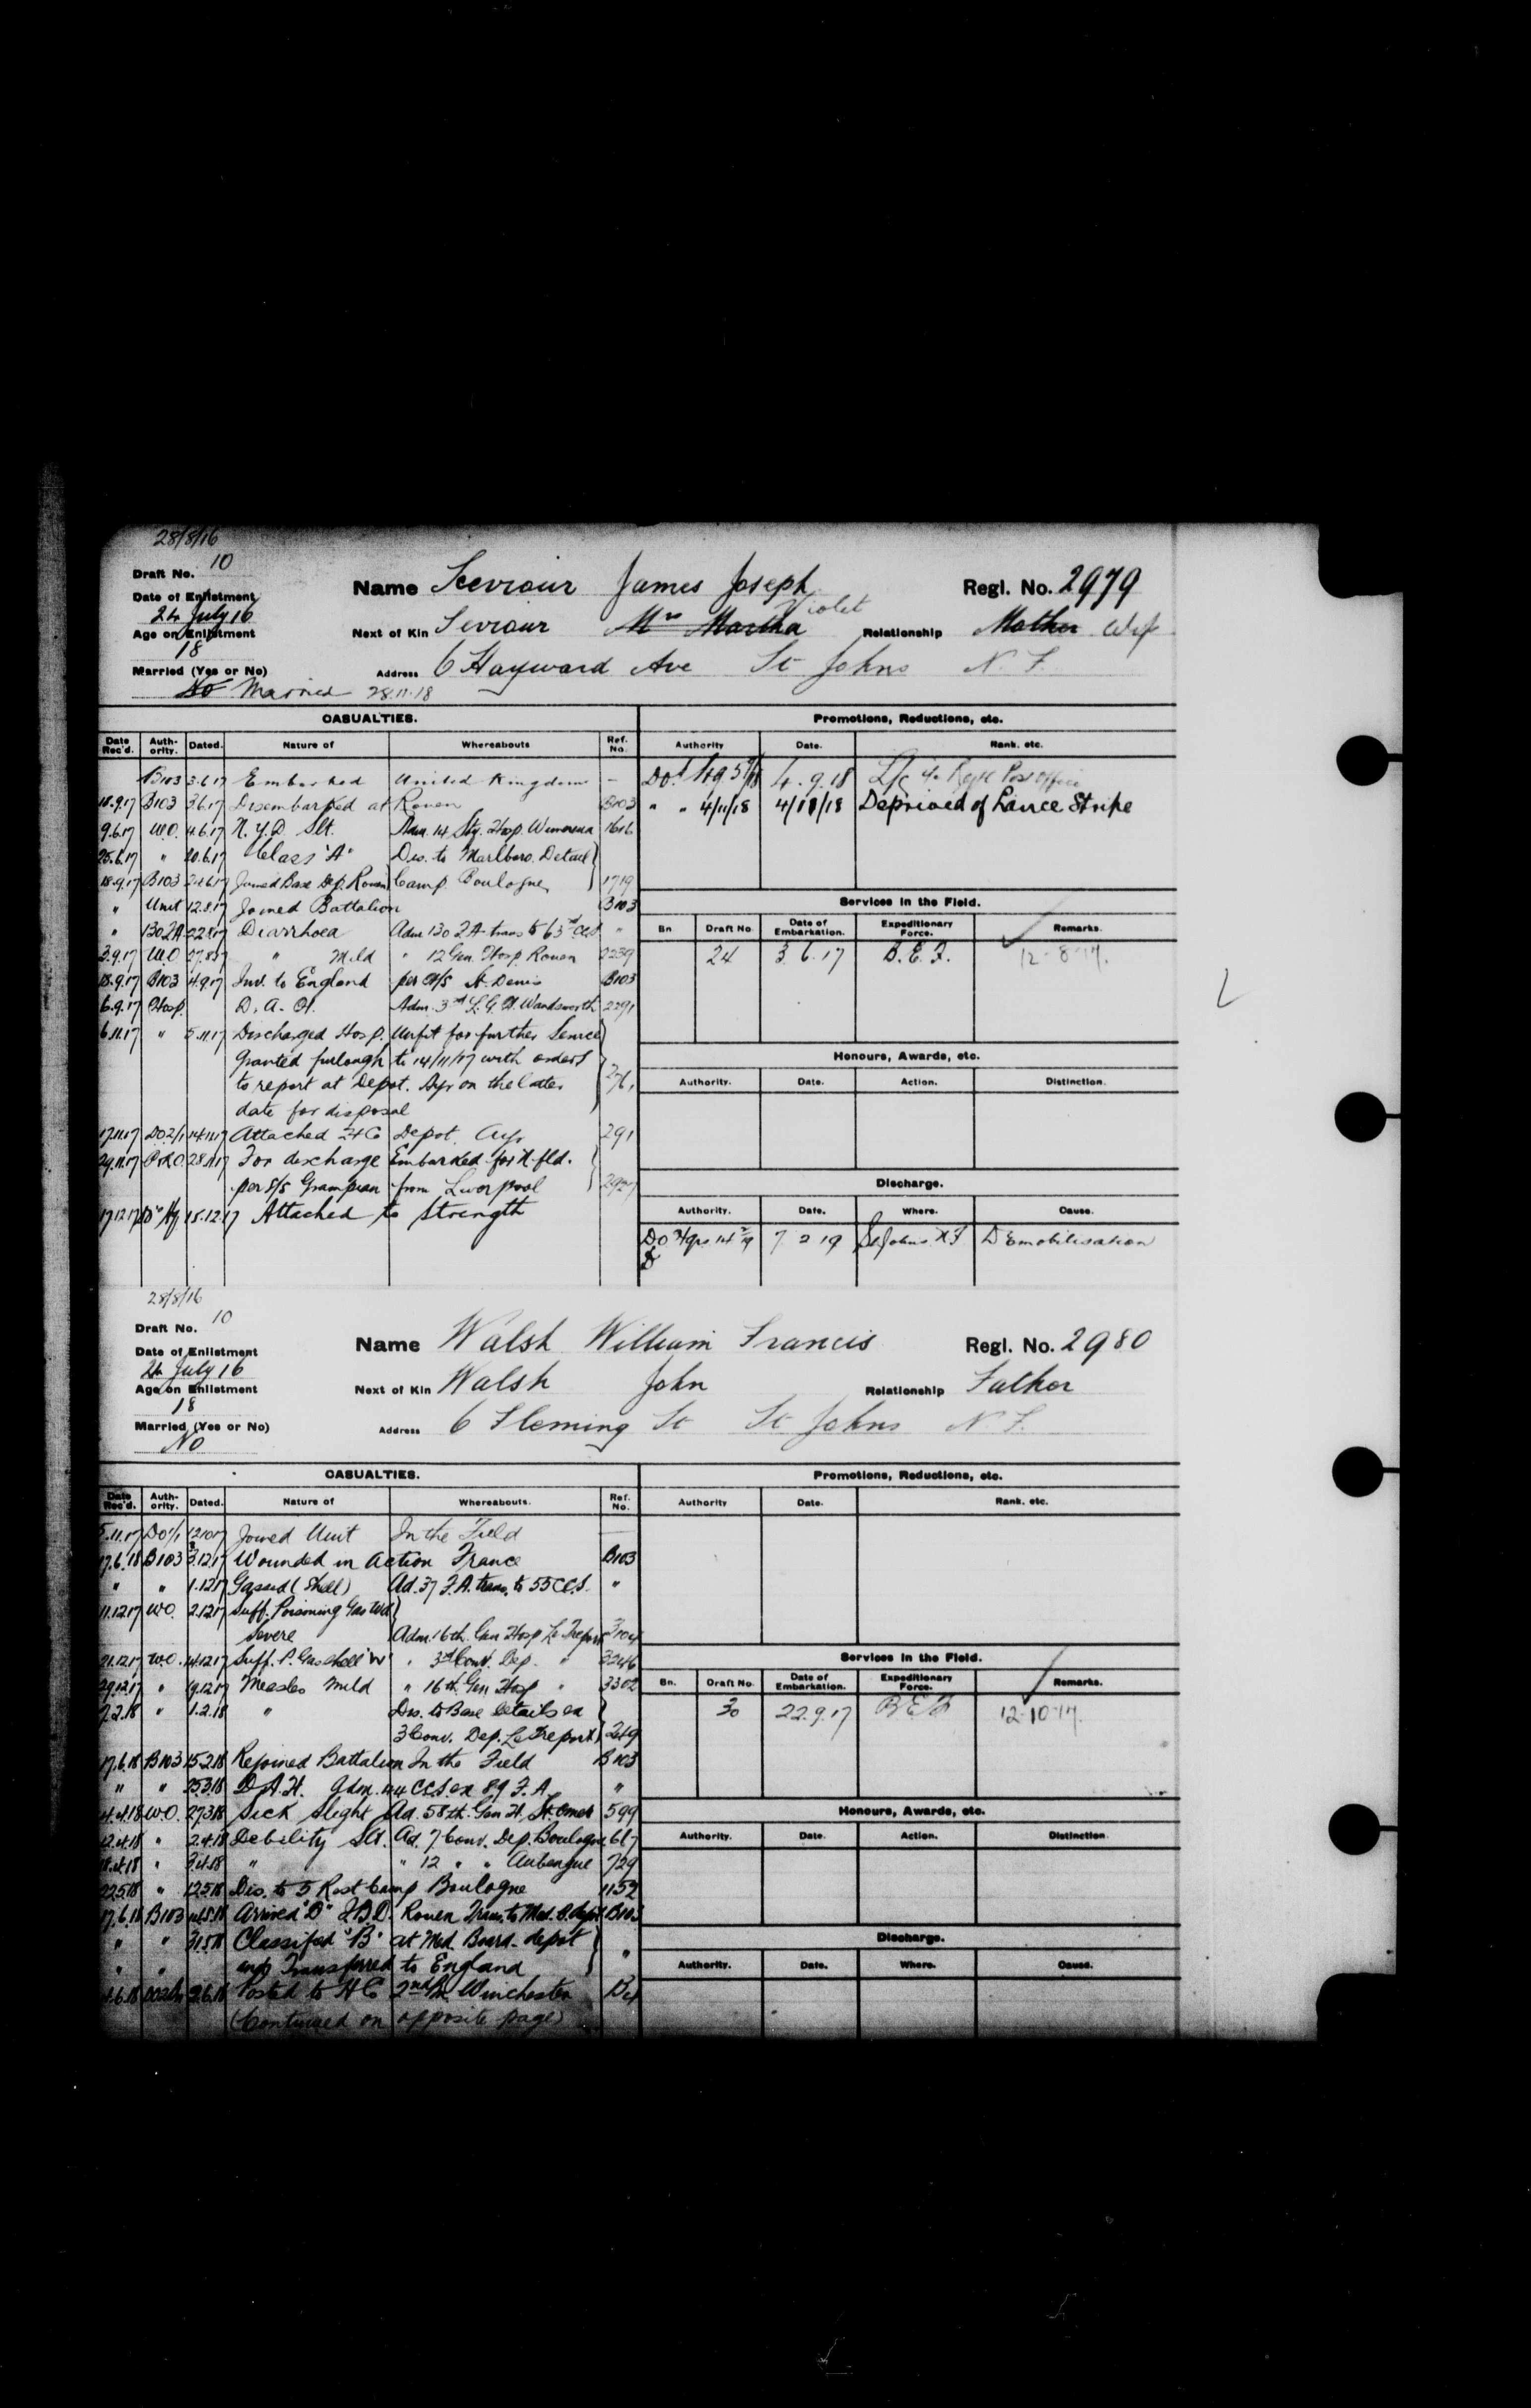 28/8/16
Draft No. 10
Name Seeviour James Joseph Regl. No. 2979
Date of Enlistment
24 July 16
Violet
Next of Kin Seviour Mrs Martha Relationship Mother Wife
Age on Enlistment
18
Married (Yes or No)
Address 6 Hayward Ave St Johns N.F.
No Married 28.11.18
CASUALTIES. Promotions, Reductions, etc.
Date Rec'd. Auth-ority. Dated. Nature of Whereabouts Ref. No. Authority Date. Rank. etc.
B103 3.6.17 Embarked United Kingdom - 4.9.18 L/c Regtl Post Office
18.9.17 B103 Disembarked at Rouen B103 " " 4/11/18 4/18/18 Deprived of Lance Stripe
9.6.17 W.O. 4.6.17 N.Y.D. Slt. Adm. 14 Sty. Hosp. Wimereux 1616
25.6.17 " 20.6.17 Class "A" Dis. to Marlboro. Detail
18.9.17 B103 Joined Base Dep. Rouen Camp Boulogne 1719
" Unit 12.8.17 Joined Battalion B103
Services in the Field.
" 22.8.17 Diarrhoea Adm 130 F.A. trans to 63rd CCS "
Bn Draft No. Date of Embarkation. Expeditionary Force. Remarks.
3.9.17 W.O 27.8.17 " Mild " 12 Gen. Hosp Rouen 2239
24 3.6.17 B.E.F. 12-8-17.
18.9.17 B103 4.9.17 Inv. to England per H/S St. Denis B103
6.9.17 Hosp. D.A.H. Adm. 3rd L.G.H. Wandsworth 2291
6.11.17 " 5.11.17 Discharged Hosp. Unfit for further Service
Granted furlough to 14/11/17 with orders
Honours, Awards, etc.
to report at Depot. Ayr on the latter
Authority. Date. Action. Distinction.
date for disposal
17.11.17 14.11.17 Attached H Co Depot. Ayr 291
29.11.17 P&RO. 28.11.17 For discharge Embarked for N.fld.
per S/S Grampian from Liverpool
Discharge.
17.12.17 15.12.17 Attached to Strength
Authority. Date. Where. Cause.
7 2 19 St Johns N.F Demobilisation
28/8/16
Draft No. 10
Name Walsh William Francis Regl. No. 2980
Date of Enlistment
24 July 16
Next of Kin Walsh John Relationship Father
Age on Enlistment
18
Married (Yes or No)
Address 6 Fleming St St Johns N.F.
No
CASUALTIES. Promotions, Reductions, etc.
Date Rec'd. Auth-ority. Dated. Nature of Whereabouts. Ref. No. Authority Date. Rank. etc.
5.11.17 Joined Unit In the Field
17.6.18 B103 3.12.17 Wounded in action France B103
" " 1.12.17 Gassed (Shell) Ad. 37 F.A. trans. to 55 C.C.S. "
11.12.17 WO. 2.12.17 Suff. Poisoning Gas Wd
Severe Adm. 16th. Gen Hosp Le Treport
21.12.17 W.O. 14.12.17 Suff. P. Gas shell "W" " 3rd Conv. Dep. " 3246
Services in the Field.
29.12.17 " 19.12.17 Measles mild " 16th. Gen Hosp " 3302
Bn. Draft No. Date of Embarkation. Expeditionary Force. Remarks.
7.2.18 " 1.2.18 " Dis. to Base Details ex
30 22.9.17 B.E.F. 12-10-17.
3 Conv. Dep. Le Treport 249
17.6.18 B103 15.2.18 Rejoined Battalion In the Field B103
" " 25.3.18 D.A.H. Adm. 44 C.C.S. ex 89 F.A. "
4.4.18 W.O. 27.3.18 Sick Slight Ad. 58th. Gen H. St. Omer 599
Honours, Awards, etc.
12.4.18 " 2.4.18 Debility Slt. Ad. 7 Conv. Dep. Boulogne 667
Authority. Date. Action. Distinction
" 3.4.18 " " 12 " " Aubengue 729
22.5.18 " 12.5.18 Dis. to 5 Rest Camp Boulogne 1152
17.6.18 B103 14.5.18 Arrived "D" I.B.D. Rouen Trans. to Med. B. depot B103
" " 31.5.18 Classified "B" at Med. Board. depot
Discharge.
" " and Transferred to England "
Authority. Date. Where. Cause.
2.6.18 Posted to H Co 2nd Bn. Winchester
(Continued on opposite page)